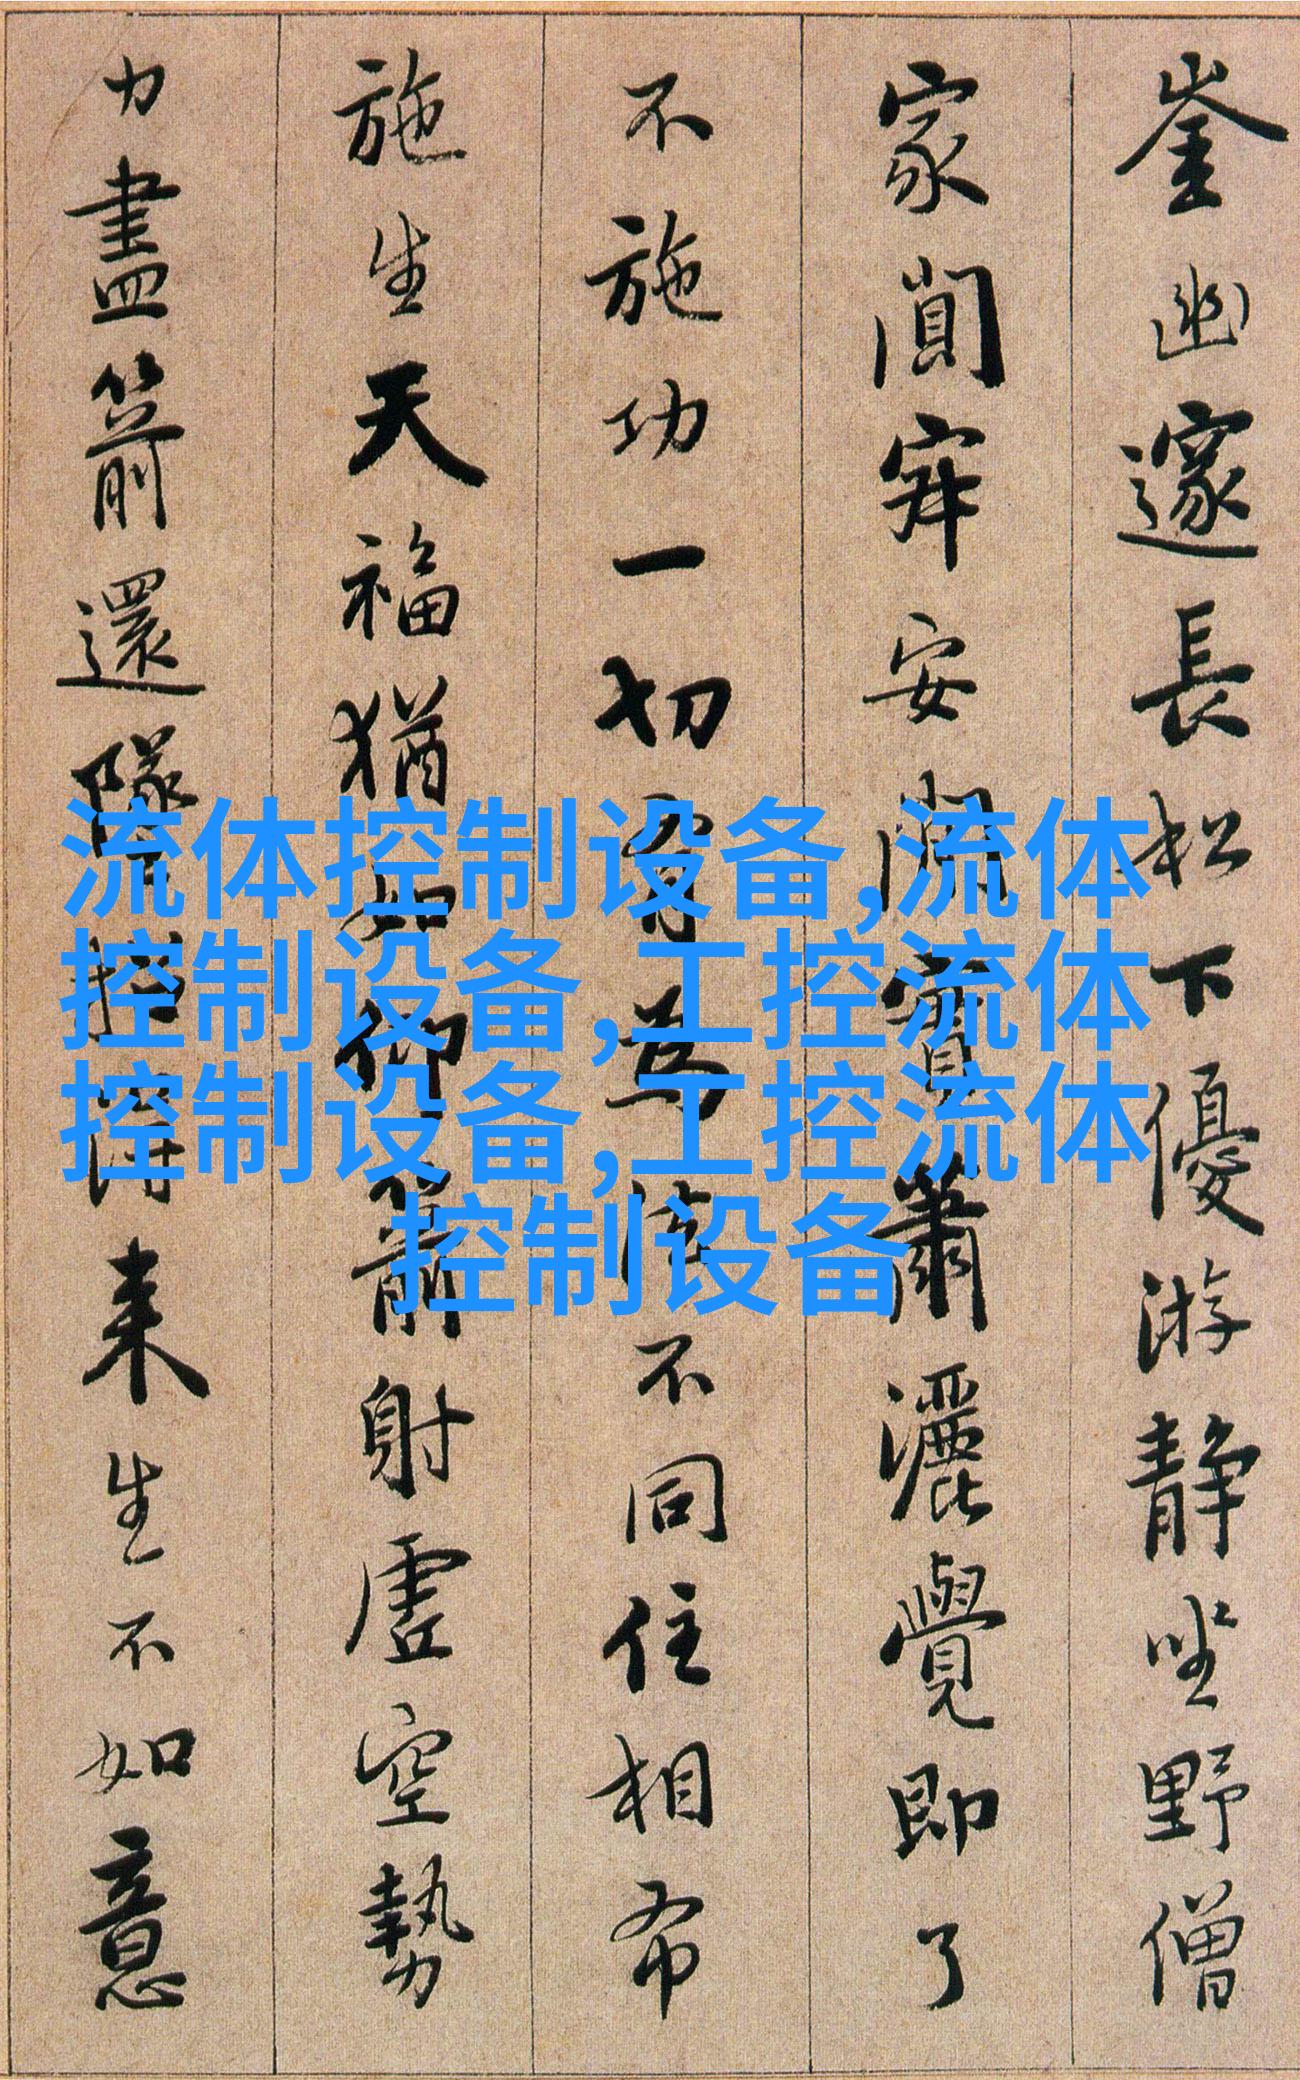 崟幽邃長松下優游静坐野僧
家闃寂安閑實蕭灑覺即了
不施功一切有為法不同住相布
施生天福猶如仰箭射虛空勢
力盡箭還墜招得来生不如意
流体控制设备,流体
控制设备,工控流体
控制设备,工控流体
控制设备